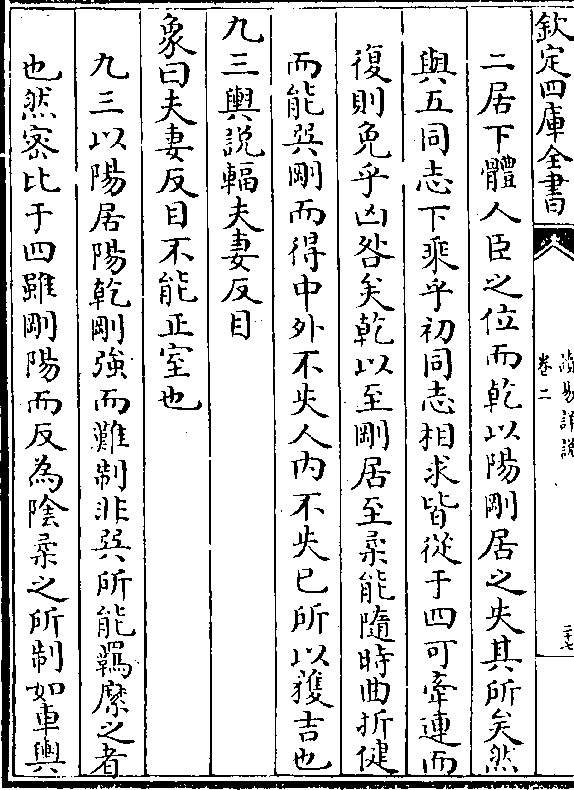 欽定四庫全書
讀易詳說
卷二
二居下體人臣之位而乾以陽剛居之失其所矣然
與五同志下乘乎初同志相求皆從于四可牽連而
復則免乎凶咎矣乾以至剛居至柔能隨時曲折健
而能巽剛而得中外不失人內不失已所以獲吉也
九三輿說輻夫妻反目
象曰夫妻反目不能正室也
九三以陽居陽乾剛強而難制非巽所能羈縻之者
也然密比于四雖剛陽而反為陰柔之所制如車輿